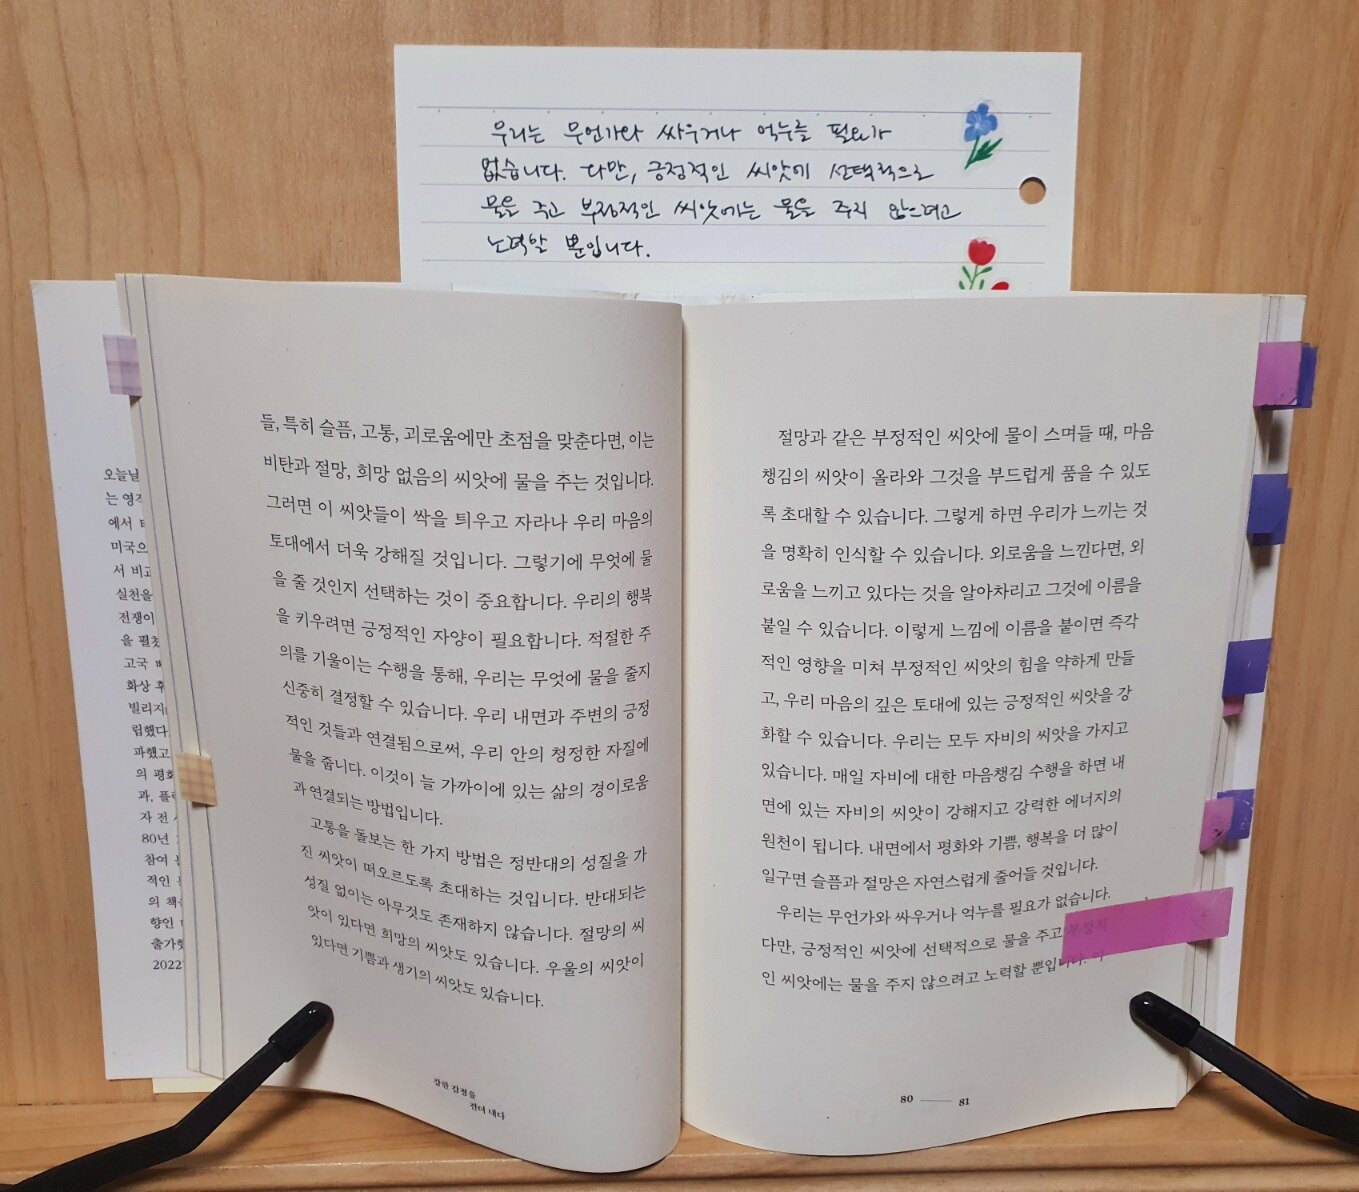 우리는 무언가와 싸우거나 억누를 필요가
없습니다. 다만, 긍정적인 씨앗에 선택적으로
물을 주고 부정적인 씨앗에는 물을 주지 않으려고
노력할 뿐입니다.
오늘날
는 영적
에서 티
미국으
서 비고
실천을
전쟁이
을 펼쳤
고국 버
화상 후
빌리지
립했다
파했고
의 평화
과, 플
자 전 시
80년
참여 불
적인
의 책
향인
출가했
2022
들, 특히 슬픔, 고통, 괴로움에만 초점을 맞춘다면, 이는
비탄과 절망, 희망 없음의 씨앗에 물을 주는 것입니다.
그러면 이 씨앗들이 싹을 틔우고 자라나 우리 마음의
토대에서 더욱 강해질 것입니다. 그렇기에 무엇에 물
을 줄 것인지 선택하는 것이 중요합니다. 우리의 행복
을 키우려면 긍정적인 자양이 필요합니다. 적절한 주
의를 기울이는 수행을 통해, 우리는 무엇에 물을 줄지
신중히 결정할 수 있습니다. 우리 내면과 주변의 긍정
적인 것들과 연결됨으로써, 우리 안의 청정한 자질에
물을 줍니다. 이것이 늘 가까이에 있는 삶의 경이로움
과 연결되는 방법입니다.
고통을 돌보는 한 가지 방법은 정반대의 성질을 가
진 씨앗이 떠오르도록 초대하는 것입니다. 반대되는
성질 없이는 아무것도 존재하지 않습니다. 절망의 씨
앗이 있다면 희망의 씨앗도 있습니다. 우울의 씨앗이
있다면 기쁨과 생기의 씨앗도 있습니다.
강한 감정을
견뎌 내다
절망과 같은 부정적인 씨앗에 물이 스며들 때, 마음
챙김의 씨앗이 올라와 그것을 부드럽게 품을 수 있도
록 초대할 수 있습니다. 그렇게 하면 우리가 느끼는 것
을 명확히 인식할 수 있습니다. 외로움을 느낀다면, 외
로움을 느끼고 있다는 것을 알아차리고 그것에 이름을
붙일 수 있습니다. 이렇게 느낌에 이름을 붙이면 즉각
적인 영향을 미쳐 부정적인 씨앗의 힘을 약하게 만들
고, 우리 마음의 깊은 토대에 있는 긍정적인 씨앗을 강
화할 수 있습니다. 우리는 모두 자비의 씨앗을 가지고
있습니다. 매일 자비에 대한 마음챙김 수행을 하면 내
면에 있는 자비의 씨앗이 강해지고 강력한 에너지의
원천이 됩니다. 내면에서 평화와 기쁨, 행복을 더 많이
일구면 슬픔과 절망은 자연스럽게 줄어들 것입니다.
우리는 무언가와 싸우거나 억누를 필요가 없습니다.
다만, 긍정적인 씨앗에 선택적으로 물을 주고 부정적
인 씨앗에는 물을 주지 않으려고 노력할 뿐입니다. 이
80 81